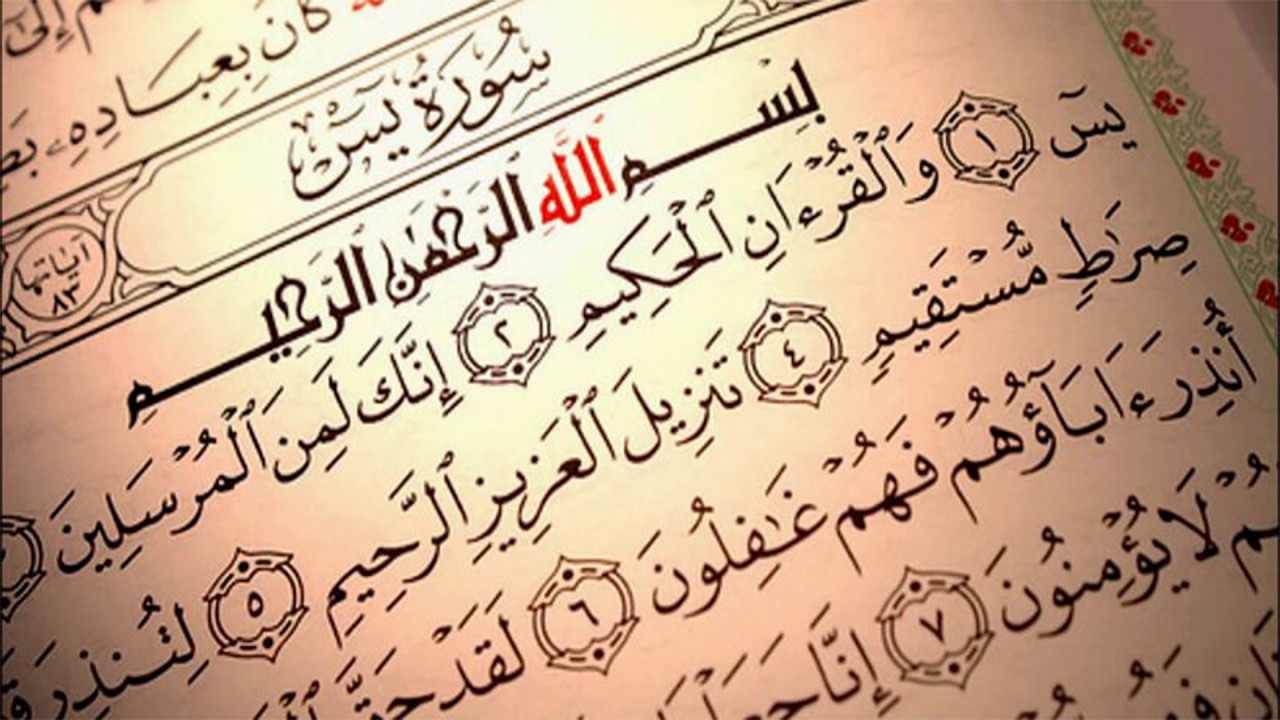 كَانَ بِعِبَادِهِۦ
سُورَةُ يسٓ
آيَاتُهَا ٨٣
بِسْمِ اللَّهِ الرَّحْمَٰنِ الرَّحِيمِ
يسٓ ١ وَٱلْقُرْءَانِ ٱلْحَكِيمِ ٢ إِنَّكَ لَمِنَ ٱلْمُرْسَلِينَ
صِرَٰطٍ مُّسْتَقِيمٍ ٤ تَنزِيلَ ٱلْعَزِيزِ ٱلرَّحِيمِ ٥ لِتُنذِرَ
أُنذِرَ ءَابَآؤُهُمْ فَهُمْ غَٰفِلُونَ ٦ لَقَدْ حَقَّ
لَا يُؤْمِنُونَ ٧ إِنَّا